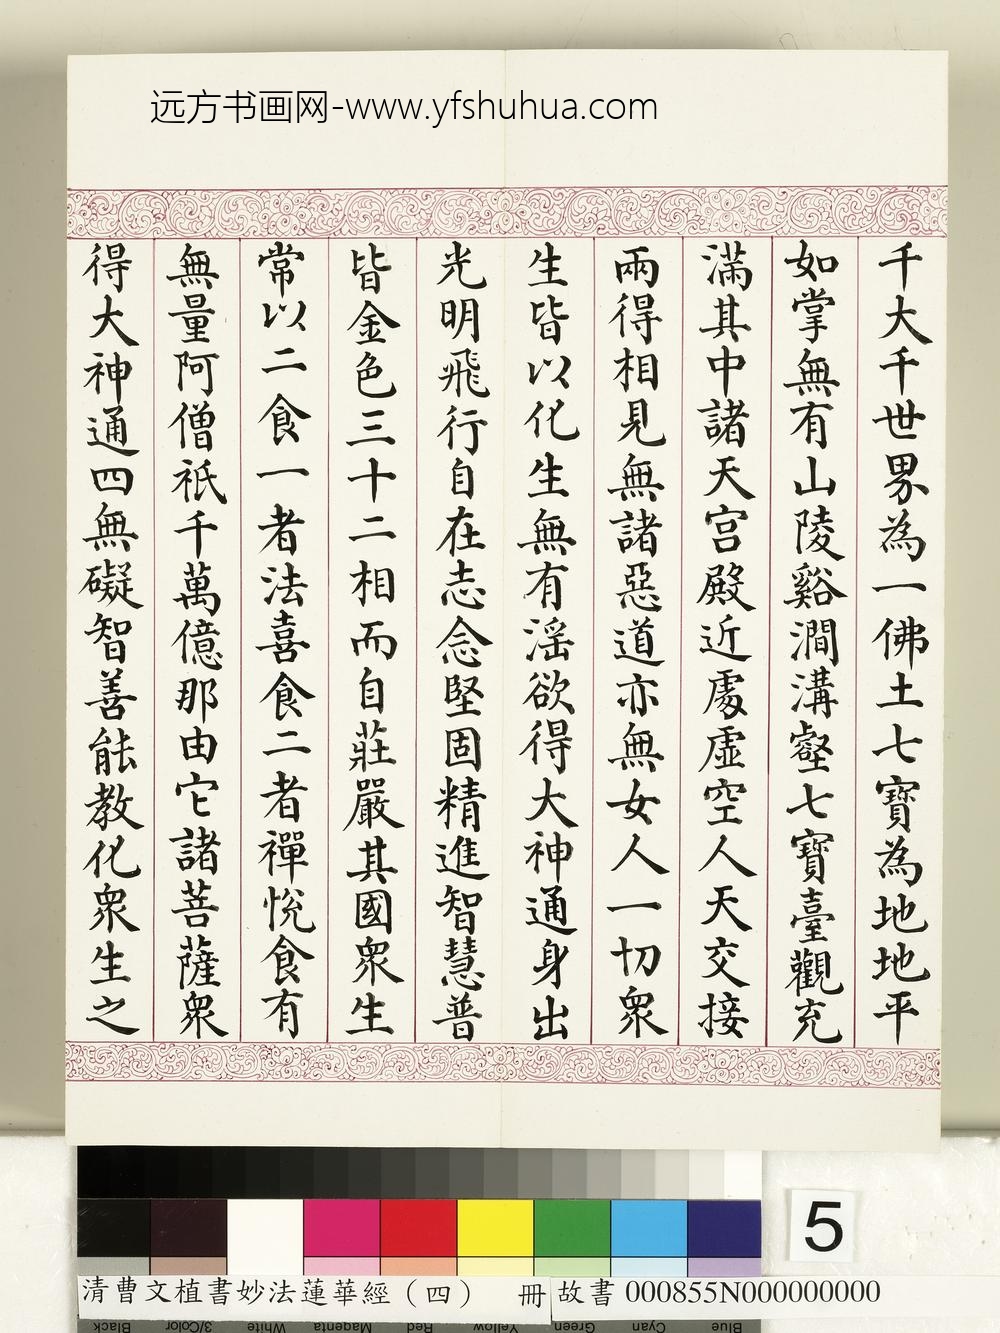 远方书画网-www.yfshuhua.com
千大千世界為一佛土七寶為地地平
如掌無有山陵谿澗溝壑七寶臺觀充
滿其中諸天宮殿近處虛空人天交接
兩得相見無諸惡道亦無女人一切眾
生皆以化生無有淫欲得大神通身出
光明飛行自在志念堅固精進智慧普
皆金色三十二相而自莊嚴其國眾生
常以二食一者法喜食二者禪悅食有
無量阿僧祇千萬億那由它諸菩薩眾
得大神通四無礙智善能教化眾生之
5
清曹文植書妙法蓮華經（四） 冊 故書 000855N000000000
Black 3/Color White Magenta Red Yellow Green Cyan Blue